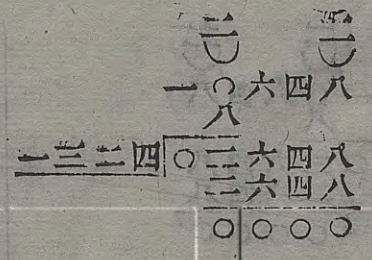 二 二
一〇六四八
八
一三二四〇二六四八
二六四八
〇〇〇〇